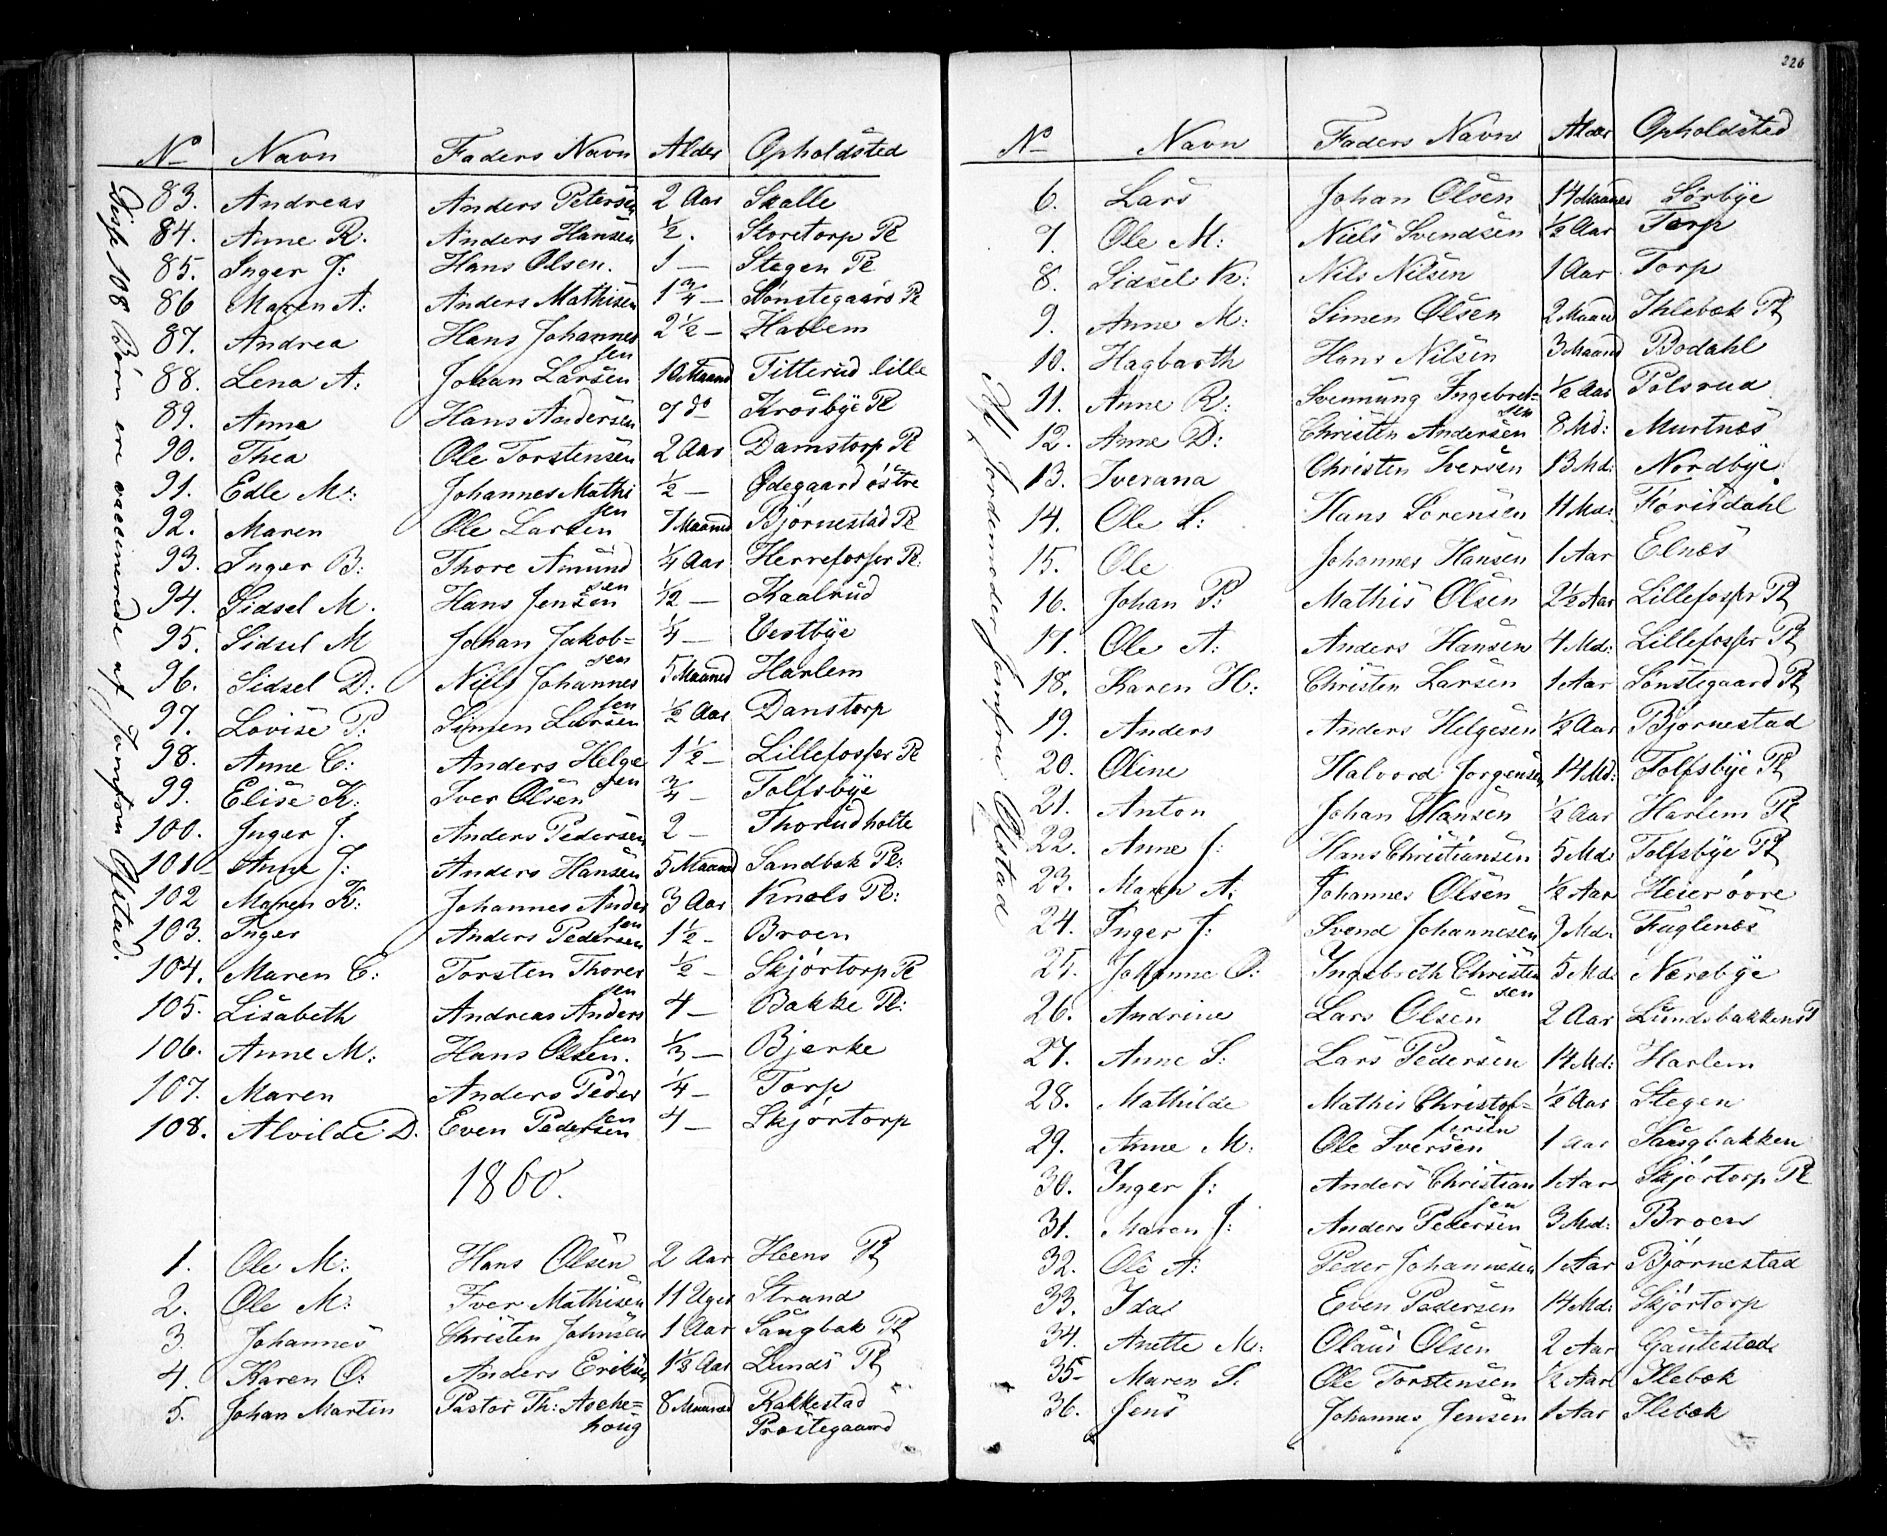 No Navn Faders Navn Alder Opholdsted
83. Andreas Anders Petersen 2 Aar Skalle
84. Anne R. Anders Hansen 1/2. Storetorp Pl
85. Inger J: Hans Olsen. 1 — Stegen Pl
86 Maren A: Anders Mathisen 1 3/4 — Sønstegaard Pl
87. Andrea Hans Johannes 2 1/2 — Harlem
sen
88. Lena A: Johan Larsen 10 Maaned Titterud lille
89. Anna Hans Andersen 7 do Krosbye Pl
90. Thea Ole Torstensen 2 Aar Damstorp Pl
91. Edle M: Johannes Mathi 1/2 — Ødegaard östre
sen
92. Maren Ole Larsen 7 Maaned Bjørnestad Pl
93. Inger B: Thore Amund 1/4 Aar Herrefosser Pl:
sen
94. Sidsel M. Hans Jensen 1/2 — Kaalrud
95. Sidsel M Johan Jakob= 1/4 — Vestbye
sen
96. Sidsel D: Niels Johannes 5 Maaned Harlem
sen
97. Lovise P: Simen Larsen 1/2 Aar Danstorp
98. Anne C: Anders Helge 1 1/2 — Lillefosser Pl
sen
99. Elise K: Iver Olsen 3/4 — Tolfsbye
100. Inger J. Anders Pedersen 2 — Thorudholte
101 Anne J: Anders Hansen 5 Maaned Sandbak Pl:
102 Maren K: Johannes Anders 3 Aar Knols Pl:
sen
103. Inger Anders Pedersen 1 1/2 — Broen
104. Maren C: Torsten Thores 1/2 — Skjørtorp Pl
sen
105. Lisabeth Andreas Anders 4 — Bakke Pl:
sen
106. Anne M: Hans Olsen. 1/3 — Bjerke
107. Maren Anders Peder 1/4 — Torp
sen
108. Alvilde D. Even Pedersen 4 — Skjørtorp
Disse 108 Børn ere vaccinerede af Jomfru Ofstad.
1860.
1. Ole M: Hans Olsen 2 Aar Heens Pl
2. Ole M: Iver Mathisen 11 Uger Strand
3. Johannes Christen Johnsen 1 Aar Sangbak Pl
4. Karen O: Anders Eriksen 1 1/3 Aar Lunds Pl
5. Johan Martin Pastor Th: Asche= 8 Maaned Rakkestad
houg Præstegaard
226
No Navn Faders Navn Alder Opholdsted
6. Lars Johan Olsen 14 Maaned Sørbye
7. Ole M: Niels Svendsen 1/2 Aar Torp
8. Sidsel K: Nils Nilsen 1 Aar Torp
9. Anne M: Simen Olsen 2 Maaned Ihlebæk Pl
10. Hagbarth Hans Nilsen 3 Maaned Bodahl
11. Anne R: Svennung Ingebret= 1/2 Aar Polsrud
sen
12. Anne D: Christen Andersen 8 Md: Murtnæs
13. Iverana Christen Iversen 13 Md: Nordbye
14. Ole L: Hans Sørensen 11 Md: Förisdahl
15. Ole Johannes Hansen 1 Aar Elnæs
16. Johan P: Mathis Olsen 2 1/2 Aar Lillefosser Pl
17. Ole A: Anders Hansen 4 Md: Lillefosser Pl
18. Karen H: Christen Larsen 1 Aar Sönstegaard Pl
19. Anders Anders Helgesen 1/2 Aar Bjørnestad
20. Oline Halvord Jorgensen 14 Md: Tolfsbye Pl
21. Anton Johan Hansen 1/2 Aar Harlem Pl
22. Anne J: Hans Christiansen 5 Md: Tolfsbye Pl
23. Maren A: Johannes Olsen 1/2 Aar Heier övre
24. Inger J: Svend Johannesen 9 Md: Fuglenæs
25. Johanne O: Ingebreth Christen 5 Md: Nærebye
sen
26. Andrine Lars Olsen 2 Aar Lundsbakken Pl
27. Anne S: Lars Pedersen 14 Md: Harlem
28. Mathilde Mathis Christof= 1/2 Aar Stegen
fersen
29. Anne M: Ole Iversen 1 aar Sangbakken
30. Inger J: Anders Christian 1 Aar Skjörtorp Pl
sen
31. Maren J: Anders Pedersen 3 Md: Broen
32. Ole A: Peder Johannesen 1 Aar Bjørnestad
33. Ida Even Pedersen 14 Md: Skjörtorp
34. Anette M: Olaus Olsen 2 Aar Gautestad
35 Maren S. Ole Torstensen 1/2 Aar Ilebæk
36. Jens Johannes Jensen 1 Aar Ilebæk
Af Jordemoder Jomfru Ofstad